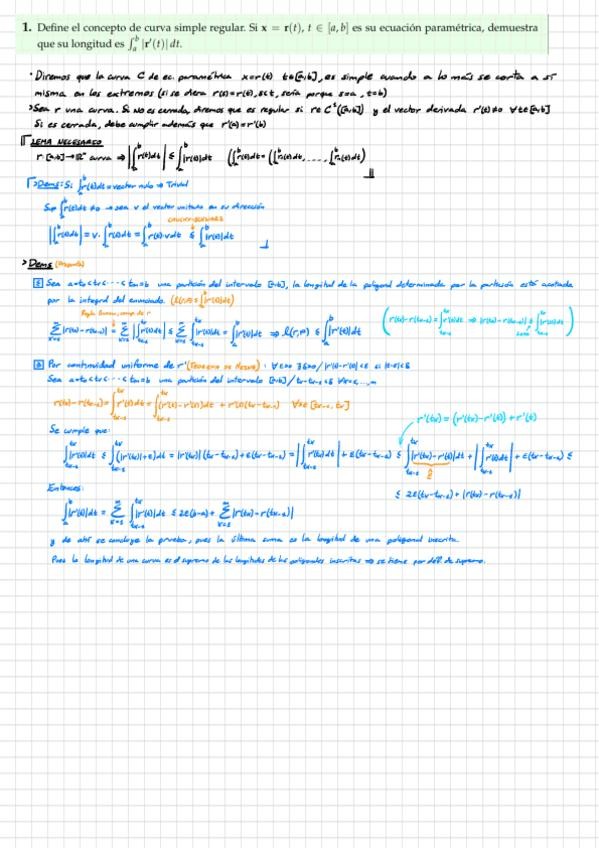 1. Define el concepto de curva simple regular. Si x = r(t), t ∈ [a, b] es su ecuación paramétrica, demuestra
que su longitud es ∫_a^b |r'(t)| dt.
· Diremos que la curva C de ec. paramétrica x=r(t) t∈[a,b], es simple cuando a lo más se corta a sí
misma en los extremos (si se diera r(s)=r(t), s<t, sería porque s=a, t=b)
> Sea r una curva. Si no es cerrada, diremos que es regular si r∈C¹([a,b]) y el vector derivada r'(t)≠0 ∀t∈[a,b]
Si es cerrada, debe cumplir además que r'(a)=r'(b)
LEMA NECESARIO
r:[a,b]→ℝⁿ curva ⇒ |∫_a^b r(t)dt| ≤ ∫_a^b |r(t)|dt (∫_a^b r(t)dt = (∫_a^b r₁(t)dt, ..., ∫_a^b rₙ(t)dt)
> Dems: Si ∫_a^b r(t)dt = vector nulo ⇒ Trivial
Sup ∫_a^b r(t)dt ≠0 → sea v el vector unitario en su dirección
CAUCHY-SCHWARZ
|∫_a^b r(t)dt| = v·∫_a^b r(t)dt = ∫_a^b r(t)·v dt ≤ ∫_a^b |r(t)|dt
> Dems (Pregunta)
≤ Sea a=t₀<t₁<···<tₘ=b una partición del intervalo [a,b], la longitud de la poligonal determinada por la partición está acotada
por la integral del enunciado.
Regla Barrow, comp. de r
Σ |r(tₖ)-r(tₖ₋₁)| = Σ |∫ r'(t)dt| ≤ Σ ∫ |r'(t)|dt = ∫_a^b |r'(t)|dt ⇒ ℓ(r,P) ≤ ∫_a^b |r'(t)|dt
≥ Por continuidad uniforme de r' (Teorema de Heine): ∀ε>0 ∃δ>0 / |r'(t)-r'(s)|<ε si |t-s|<δ
Sea a=t₀<t₁<···<tₘ=b una partición del intervalo [a,b] / tₖ-tₖ₋₁<δ
Se cumple que:
r'(tₖ)=(r'(tₖ)-r'(t))+r'(t)
≤ 2ε(tₖ-tₖ₋₁)+|r(tₖ)-r(tₖ₋₁)|
Entonces:
∫_a^b |r'(t)|dt = Σ ∫ |r'(t)|dt ≤ 2ε(b-a)+ Σ |r(tₖ)-r(tₖ₋₁)|
y de ahí se concluye la prueba, pues la última suma es la longitud de una poligonal inscrita.
Pues la longitud de una curva es el supremo de las longitudes de las poligonales inscritas ⇒ se tiene por def. de supremo.